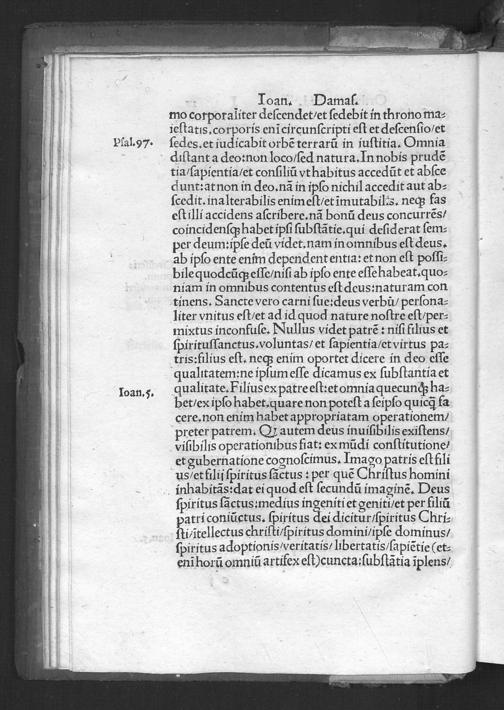 Ioan. Damas.
mo corporaliter descendet/et sedebit in throno ma⸗
iestatis. corporis eni circunscripti est et descensio/et
Psal.97. sedes. et iudicabit orbē terrarū in iustitia. Omnia
distant a deo: non loco/sed natura. In nobis prudē
tia/sapientia/et consiliū vt habitus accedūt et absce
dunt: at non in deo. nā in ipso nichil accedit aut ab⸗
scedit. inalterabilis enim est/et īmutabilis. neqꝫ fas
est illi accidens ascribere. nā bonū deus concurrēs/
coincidensqꝫ habet ipsi substātie. qui desiderat sem⸗
per deum: ipse deū videt. nam in omnibus est deus.
ab ipso ente enim dependent entia: et non est possi⸗
bile quodcūqꝫ esse/nisi ab ipso ente esse habeat. quo⸗
niam in omnibus contentus est deus: naturam con
tinens. Sancte vero carni sue: deus verbū/persona⸗
liter vnitus est/et ad id quod nature nostre est/per⸗
mixtus inconfuse. Nullus videt patrē: nisi filius et
spiritussanctus. voluntas/et sapientia/et virtus pa⸗
tris: filius est. neqꝫ enim oportet dicere in deo esse
qualitatem: ne ipsum esse dicamus ex substantia et
Ioan.5. qualitate. Filius ex patre est: et omnia quecunqꝫ ha⸗
bet/ex ipso habet. quare non potest a seipso quicqꝫ fa
cere. non enim habet appropriatam operationem/
preter patrem. Qꝫ autem deus inuisibilis existens/
visibilis operationibus fiat: ex mūdi constitutione/
et gubernatione cognoscimus. Imago patris est fili
us/et filij spiritus sāctus: per quē Christus homini
inhabitās: dat ei quod est secundū imaginē. Deus
spiritus sāctus: medius ingeniti et geniti/et per filiū
patri coniūctus. spiritus dei dicitur/spiritus Chri⸗
sti/ītellectus christi/spiritus domini/ipse dominus/
spiritus adoptionis/veritatis/libertatis/sapiētie (et⸗
eni horū omniū artifex est) cuncta: substātia īplens/